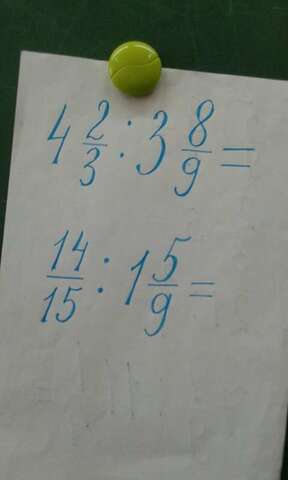 4 2/3 : 3 8/9 =
14/15 : 1 5/9 =